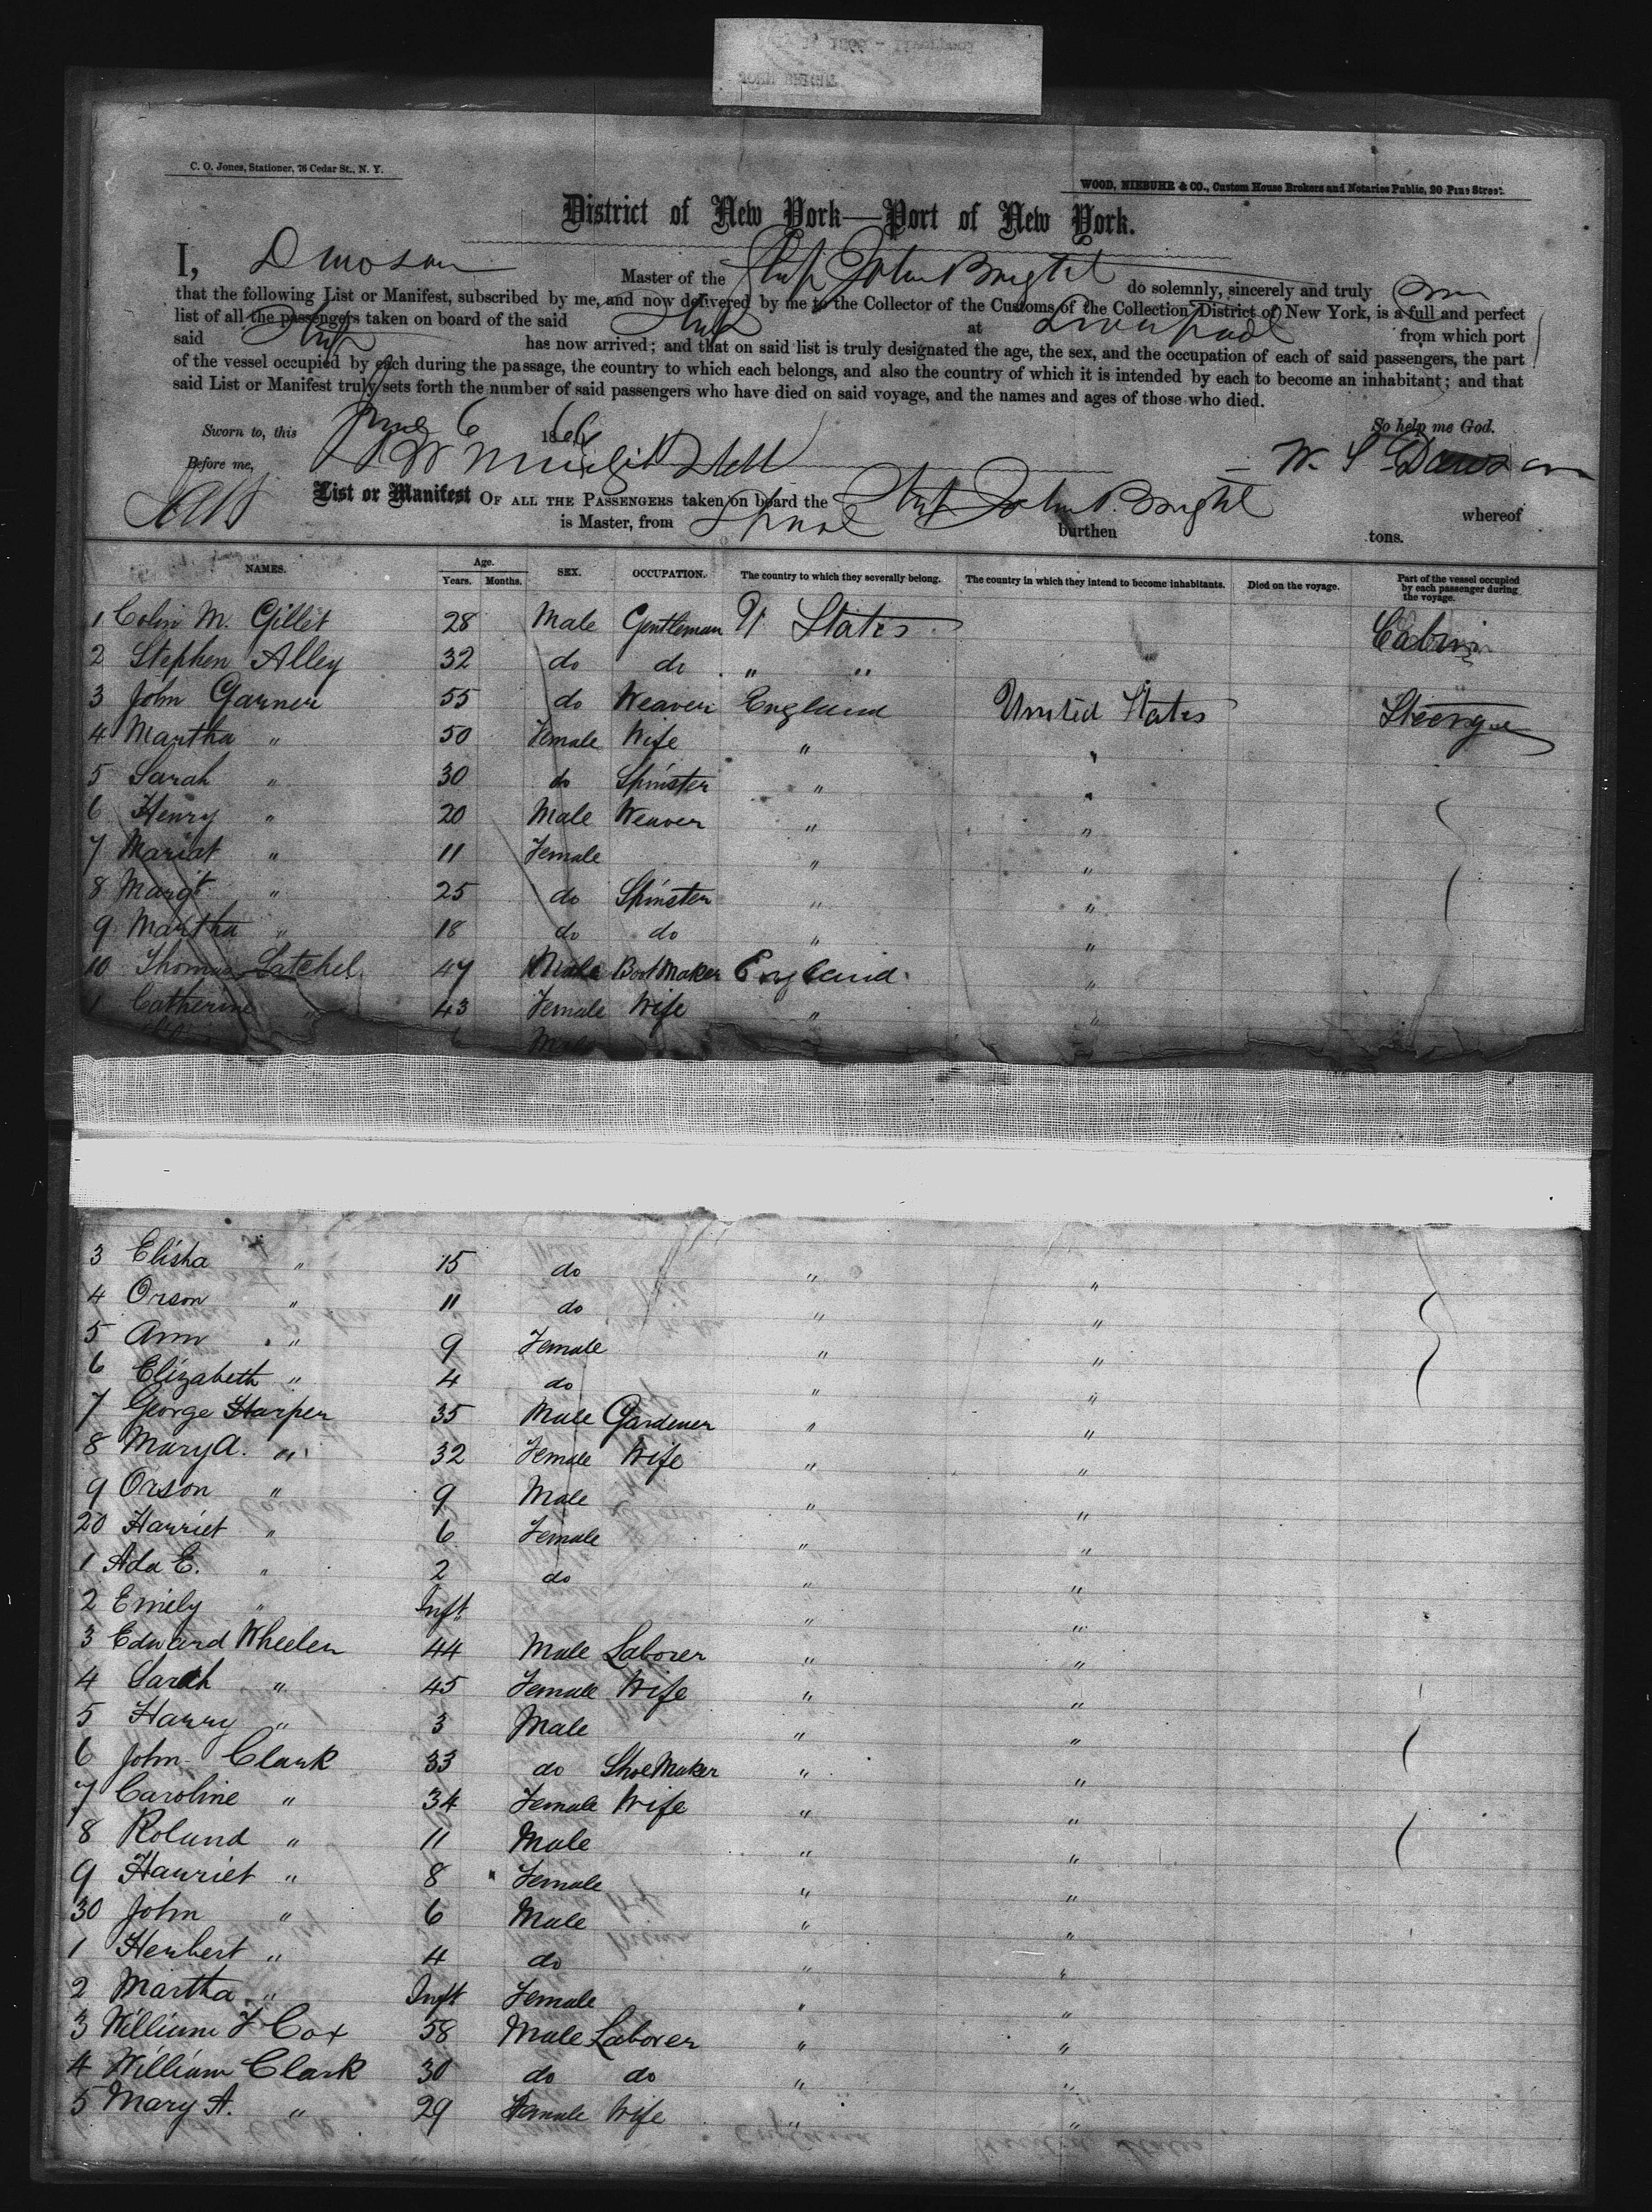 C. O. Jones, Stationer, 76 Cedar St., N. Y.
WOOD, NIEBUHR & CO., Custom House Brokers and Notaries Public, 20 Pine Street.
District of New York—Port of New York.
I, Dawson Master of the Ship John Bright do solemnly, sincerely and truly
that the following List or Manifest, subscribed by me, and now delivered by me to the Collector of the Customs of the Collection District of New York, is a full and perfect
list of all the passengers taken on board of the said Ship at Liverpool from which port
said Ship has now arrived; and that on said list is truly designated the age, the sex, and the occupation of each of said passengers, the part
of the vessel occupied by each during the passage, the country to which each belongs, and also the country of which it is intended by each to become an inhabitant; and that
said List or Manifest truly sets forth the number of said passengers who have died on said voyage, and the names and ages of those who died.
Sworn to, this June 6 1866 So help me God.
Before me, W. S. Dawson
List or Manifest OF ALL THE PASSENGERS taken on board the Ship John Bright whereof
is Master, from L'pool burthen tons.
NAMES. Age. Years. Months. SEX. OCCUPATION. The country to which they severally belong. The country in which they intend to become inhabitants. Died on the voyage. Part of the vessel occupied by each passenger during the voyage.
1 Colin M. Gillet 28 Male Gentleman U States Cabin
2 Stephen Alley 32 do do " "
3 John Garner 55 do Weaver England United States Steerage
4 Martha " 50 Female Wife " "
5 Sarah " 30 do Spinster " "
6 Henry " 20 Male Weaver " "
7 Mariat " 11 Female " "
8 Margt " 25 do Spinster " "
9 Martha " 18 do do " "
10 Thomas Latchel 47 Male Boot Maker England "
1 Catherine " 43 Female Wife " "
Male
3 Elisha " 15 do " "
4 Orson " 11 do " "
5 Ann " 9 Female " "
6 Elizabeth " 4 do " "
7 George Harper 35 Male Gardener " "
8 Mary A. " 32 Female Wife " "
9 Orson " 9 Male " "
20 Harriet " 6 Female " "
1 Ada E. " 2 do " "
2 Emily " Inft " "
3 Edward Wheeler 44 Male Laborer " "
4 Sarah " 45 Female Wife " "
5 Harry " 3 Male " "
6 John Clark 33 do Shoe Maker " "
7 Caroline " 34 Female Wife " "
8 Roland " 11 Male " "
9 Harriet " 8 Female " "
30 John " 6 Male " "
1 Herbert " 4 do " "
2 Martha " Inft Female " "
3 William F Cox 58 Male Laborer " "
4 William Clark 30 do do " "
5 Mary A. " 29 Female Wife " "